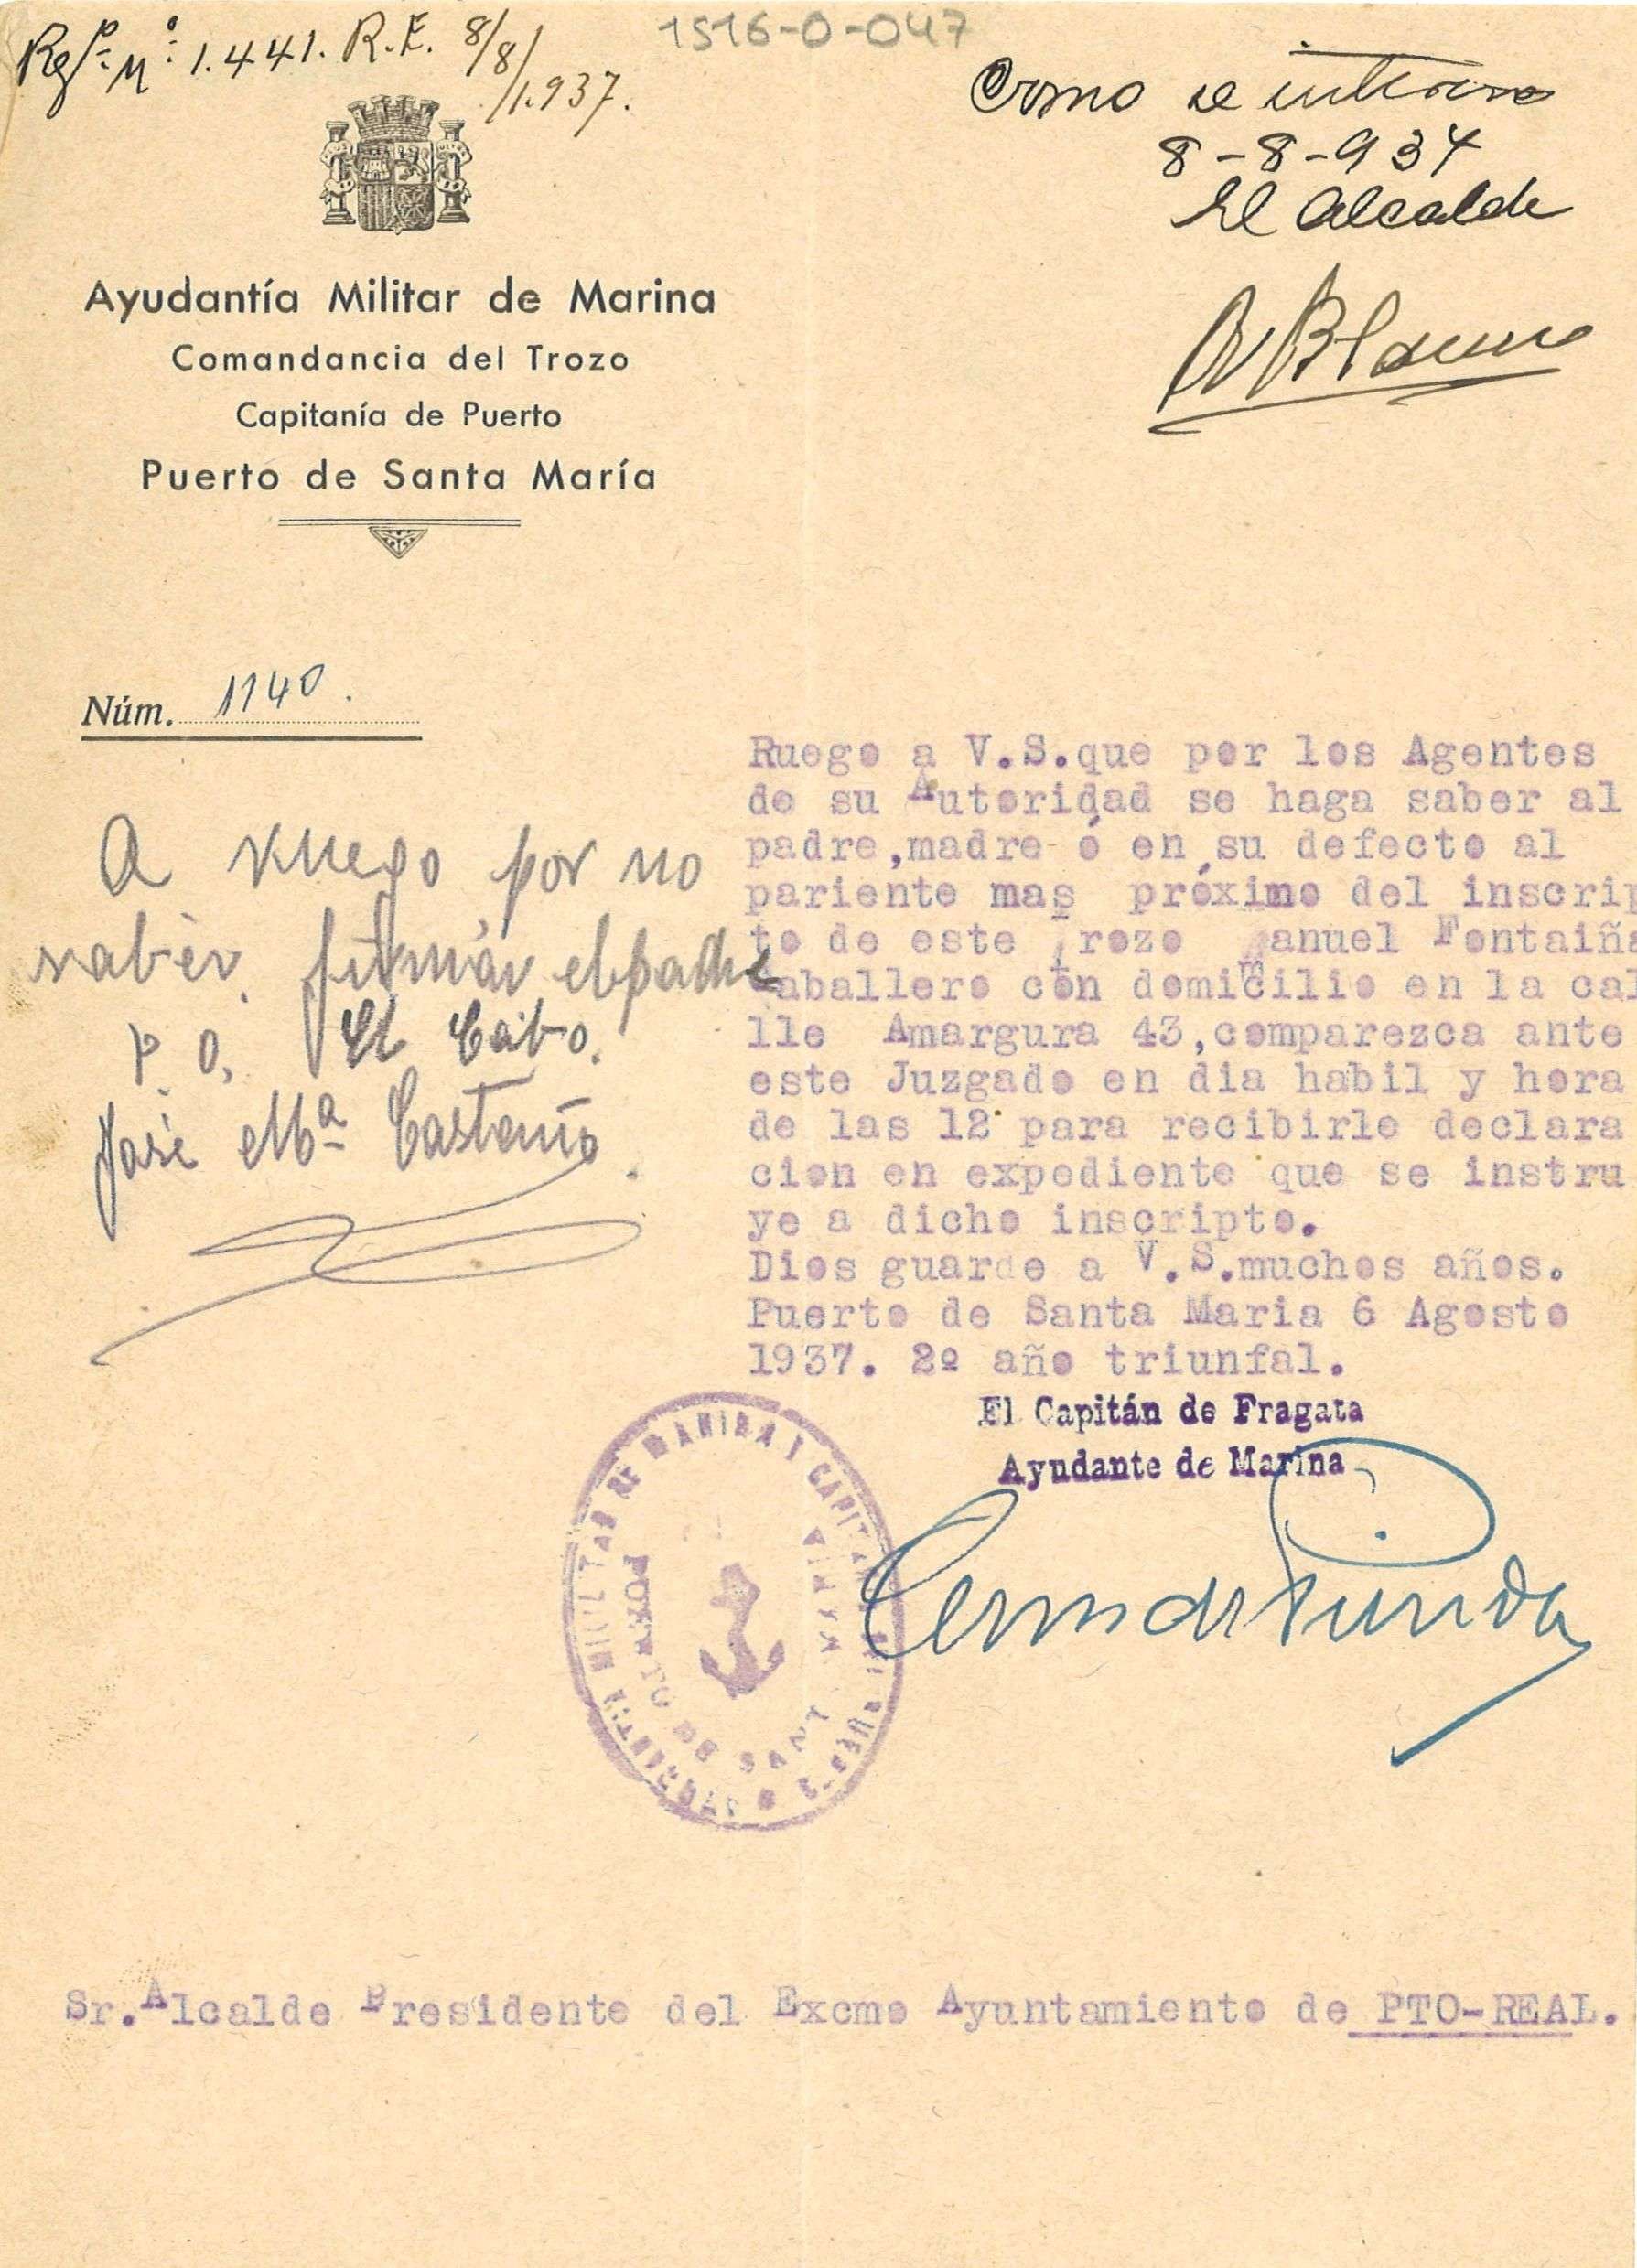 Regº. Nº. 1.441. R.E. 8/8/1.937.
1516-0-047
Como se interesa
8-8-937
El Alcalde
Ayudantía Militar de Marina
Comandancia del Trozo
Capitanía de Puerto
Puerto de Santa María
Núm. 1140.
A ruego por no
saber firmar el padre
P. O. El Cabo.
José Mª Castaño.
Ruego a V.S.que por los Agentes
de su Autoridad se haga saber al
padre,madre ó en su defecto al
pariente mas próximo del inscrip
to de este Trozo Manuel Fontaiña
Caballero con domicilio en la cal
lle Amargura 43,comparezca ante
este Juzgado en dia habil y hora
de las 12 para recibirle declara
cion en expediente que se instru
ye a dicho inscripto.
Dios guarde a V.S.muchos años.
Puerto de Santa Maria 6 Agosto
1937. 2º año triunfal.
El Capitán de Fragata
Ayudante de Marina
Sr.Alcalde Presidente del Excmo Ayuntamiento de PTO-REAL.